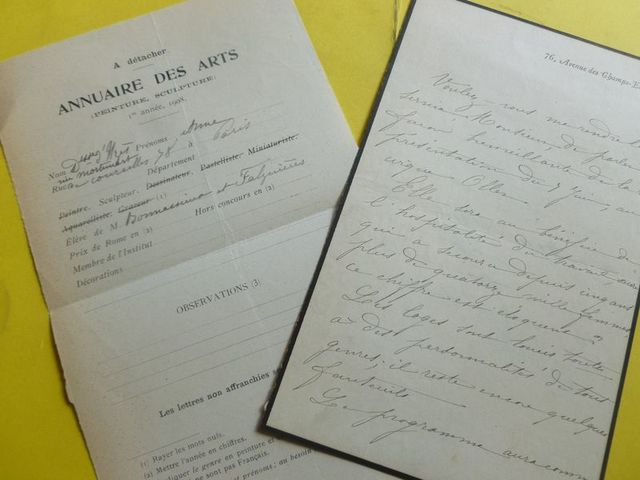 A détacher
ANNUAIRE DES ARTS
(PEINTURE, SCULPTURE)
1re année, 1908.
Nom Prénoms anne
Rue à Paris
Département
Peintre. Sculpteur. Dessinateur. Pastelliste. Miniaturiste.
Aquarelliste. Graveur (1)
Élève de M. Bonnassieux et Falguières
Prix de Rome en (2) Hors concours en (2)
Membre de l'Institut
Décorations
OBSERVATIONS (3)
Les lettres non affranchies
(1) Rayer les mots nuls.
(2) Mettre l'année en chiffres.
le genre en peinture et
ne sont pas Français.
et prénoms; au besoin
76, Avenue des Champs-E
Voulez vous me rendre le
service Monsieur de parler
bienveillante de la
présentation de
cirque
Elle sera au bénéfice de
l'hospitalité du travail,
qui a secouru depuis cinq ans
plus de quatorze mille femmes
ce chiffre est éloquent
Les loges sont louées toutes
à des personnalités de tous
genres; il reste encore quelques
fauteuils
Le programme aura comm